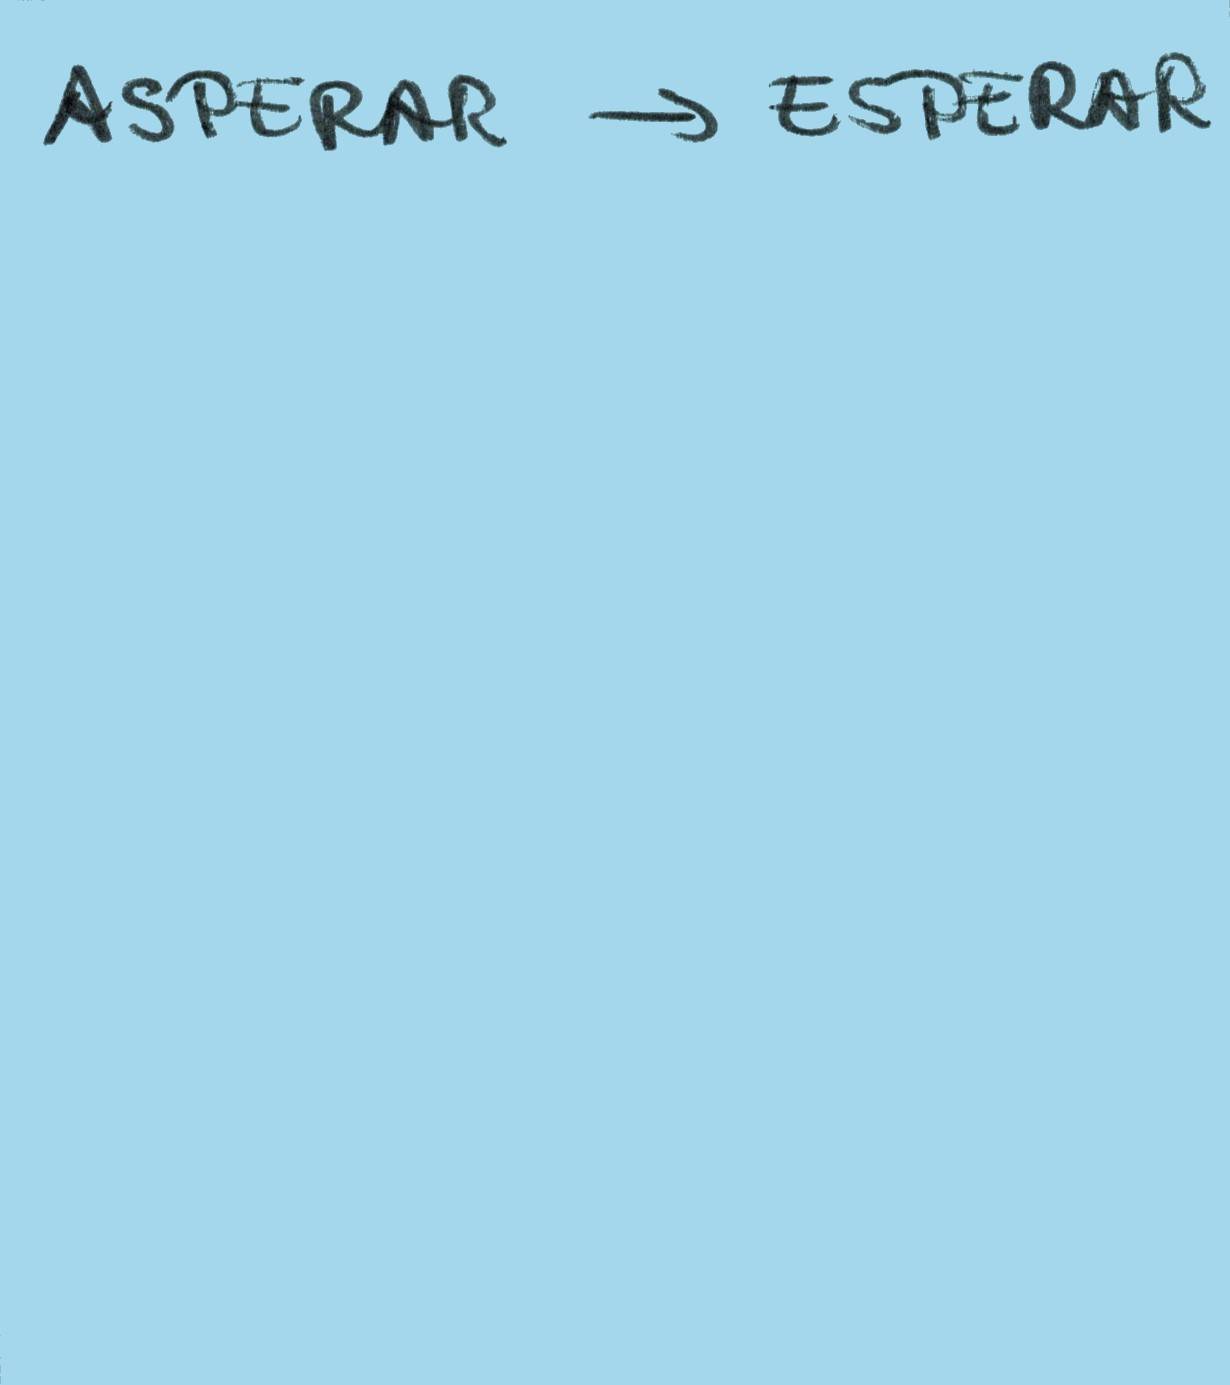 ASPERAR → ESPERAR